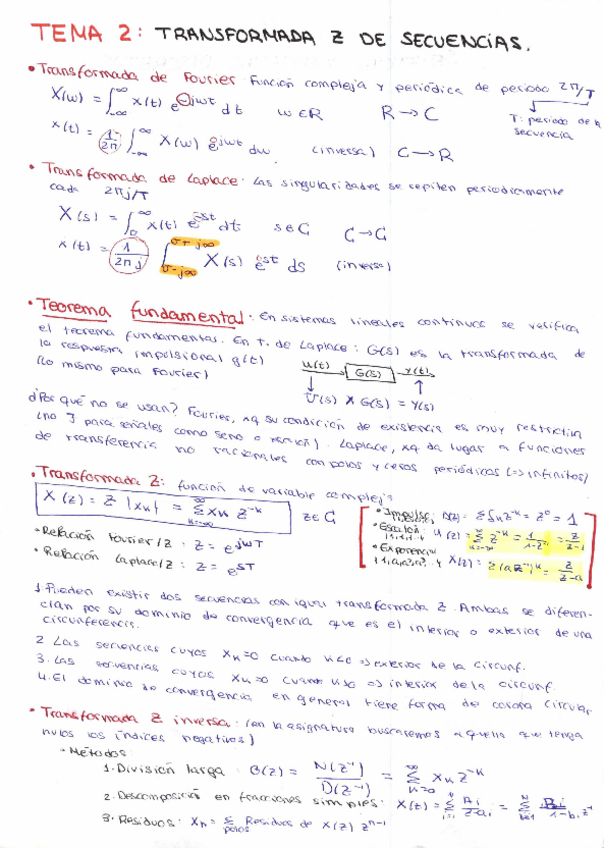 TEMA 2: TRANSFORMADA Z DE SECUENCIAS.
• Transformada de Fourier: función compleja y periódica de periodo 2π/T
X(ω) = ∫_{-∞}^{∞} x(t) e^{-jωt} dt   ω∈R   R → C
T: periodo de la secuencia
x(t) = 1/2π ∫_{-∞}^{∞} X(ω) e^{jωt} dω (inversa) C → R
• Transformada de Laplace: Las singularidades se repiten periodicamente
cada 2πj/T
X(s) = ∫_0^∞ x(t) e^{-st} dt   s∈C   C → C
x(t) = 1/2πj ∫_{σ-j∞}^{σ+j∞} X(s) e^{st} ds (inversa)
• Teorema fundamental: En sistemas lineales continuos se verifica
el teorema fundamental. En T. de Laplace: G(s) es la transformada de
la respuesta impulsional g(t)   u(t) → G(s) → y(t)
(lo mismo para Fourier)
U(s) × G(s) = Y(s)
¿Por qué no se usan? Fourier, xq su condición de existencia es muy restrictiva
(no ∃ para señales como seno o escalón). Laplace, xq da lugar a funciones
de transferencia no racionales con polos y ceros periódicos (=> infinitos)
• Transformada Z: función de variable compleja
X(z) = Z{x_k} = Σ_{k=-∞}^{∞} x_k z^{-k}   z∈C
• Impulso: Δ(z) = Σ δ_k z^{-k} = z^0 = 1
• Escalón: U(z) = Σ z^{-k} = 1/1-z^{-1} = z/z-1
{1,1,1..}
• Exponencial X(z) = Σ(a z^{-1})^k = z/z-a
• Relación Fourier/Z: z = e^{jωT}
• Relación Laplace/Z: z = e^{sT}
1. Pueden existir dos secuencias con igual transformada Z. Ambas se diferen-
cian por su dominio de convergencia que es el interior o exterior de una
circunferencia.
2. Las secuencias cuyos x_k=0 cuando k<0 => exterior de la circunf.
3. Las secuencias cuyos x_k=0 cuando k>0 => interior de la circunf.
4. El dominio de convergencia en general tiene forma de corona circular
• Transformada Z inversa: (en la asignatura buscaremos aquella que tenga
nulos los índices negativos)
• Métodos
1. División larga: G(z) = N(z^{-1})/D(z^{-1}) = Σ_{k=0}^{∞} x_k z^{-k}
2. Descomposición en fracciones simples: X(z) =
3. Residuos: x_n = Σ_{polos} Residuos de X(z) z^{n-1}